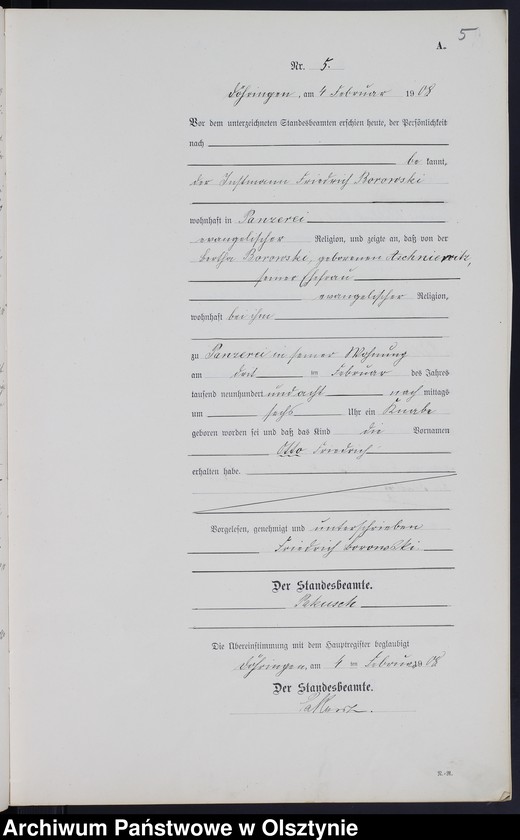 5
A.
Nr. 5.
Döhringen, am 4 Februar 1908
Vor dem unterzeichneten Standesbeamten erschien heute, der Persönlichkeit
nach
be kannt,
der Instmann Friedrich Borowski
wohnhaft in Panzerei
evangelischer Religion, und zeigte an, daß von der
Bertha Borowski, geborenen
seiner Ehefrau
evangelischer Religion,
wohnhaft bei ihm
zu Panzerei in seiner Wohnung
am ten Februar des Jahres
tausend neunhundert und acht nach mittags
um sechs Uhr ein Knabe
geboren worden sei und daß das Kind die Vornamen
Otto Friedrich
erhalten habe.
Vorgelesen, genehmigt und unterschrieben
Friedrich Borowski
Der Standesbeamte.
Die Übereinstimmung mit dem Hauptregister beglaubigt
Döhringen, am 4 ten Februar 1908
Der Standesbeamte.
K.-R.
Archiwum Państwowe w Olsztynie